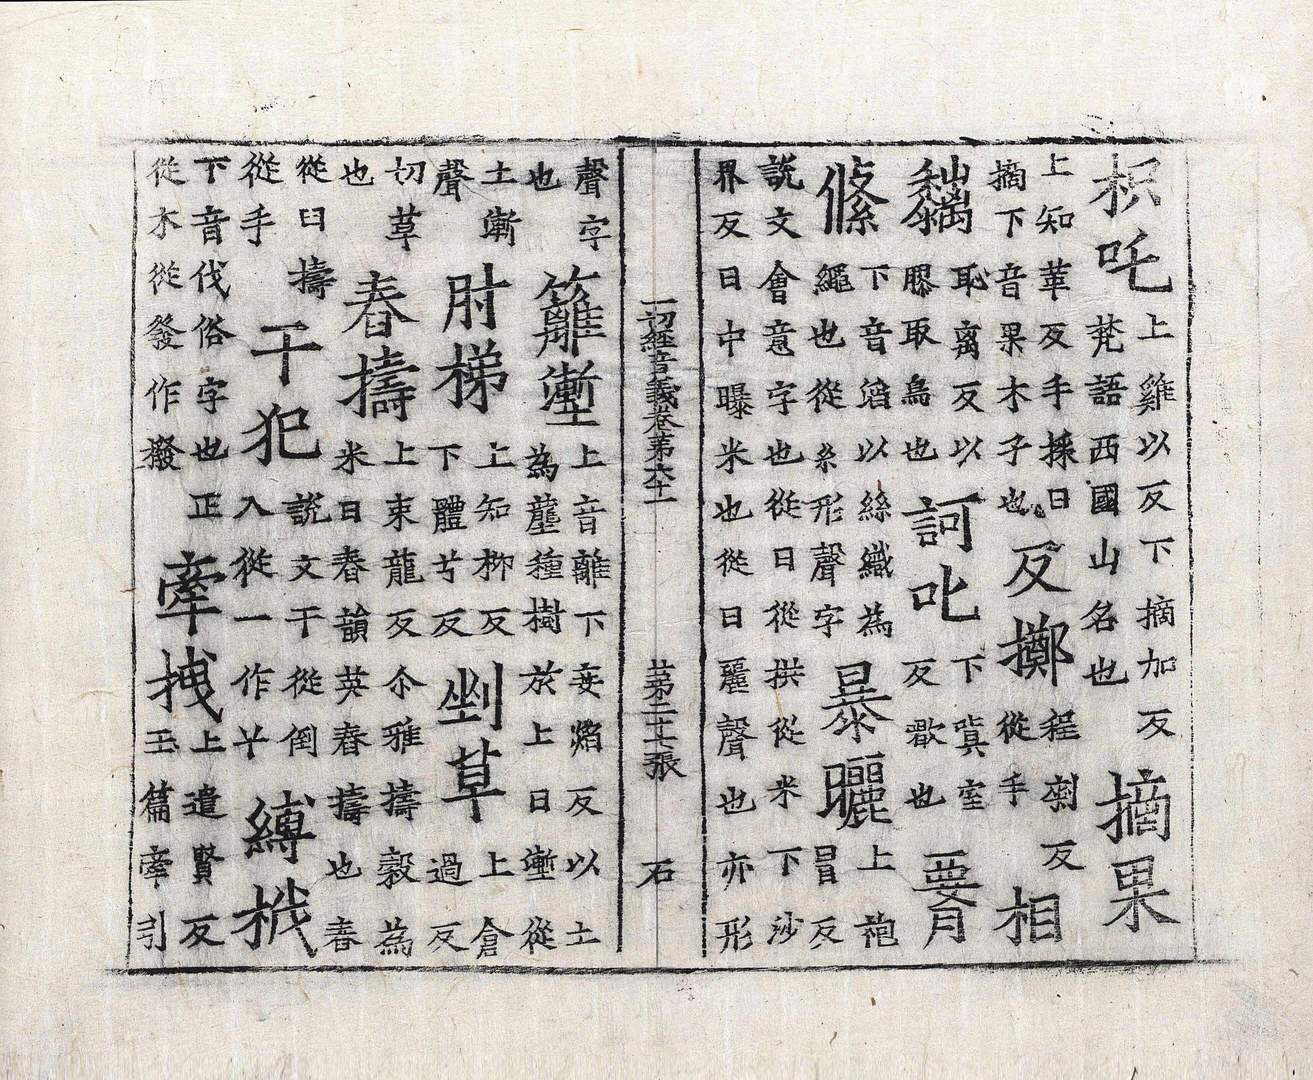 枳吒上雞以反下摘加反梵語西國山名也摘果
上知革反手採曰摘下音果木子也反擲程劇反從手相
黐恥离反以膠取鳥也訶叱下瞋室反歐也
絛下音滔以絲織為繩也從糸形聲字暴曬上袍冒反
說文會意字也從日從拱從米下沙界反日中曝米也從日麗聲也亦形
一切經音義卷第六十一 第二十七張 石
聲字也籬塹上音離下妾焰反以土為壟種樹於上曰塹從
土漸聲肘梯上知柳反下體兮反剉草上倉過反
切草也舂擣上束龍反尒雅擣穀為米曰舂韻英舂擣也舂
從臼擣從手干犯說文干從倒入從一作𢆉縛栰
下音伐俗字也正從木從發作橃牽拽上遣賢反玉篇牽引